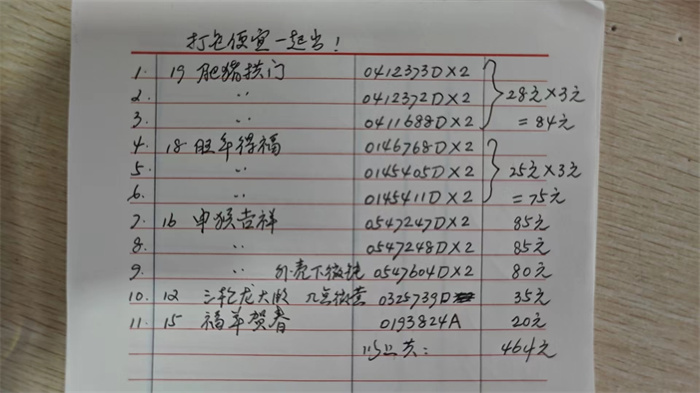 打包便宜一起出!
1. 19 肥猪拱门 0412373D×2
2. 〃 0412372D×2 28元×3元
3. 〃 0411688D×2 =84元
4. 18 旺年得福 0146768D×2
5. 〃 0145405D×2 25元×3元
6. 〃 0145411D×2 =75元
7. 16 申猴吉祥 0547247D×2 85元
8. 〃 0547248D×2 85元
9. 〃 外壳下微 0547604D×2 80元
10. 12 三轮龙大版 几点微黄 0325739D 35元
11. 15 福羊贺春 0193824A 20元
以上共: 464元